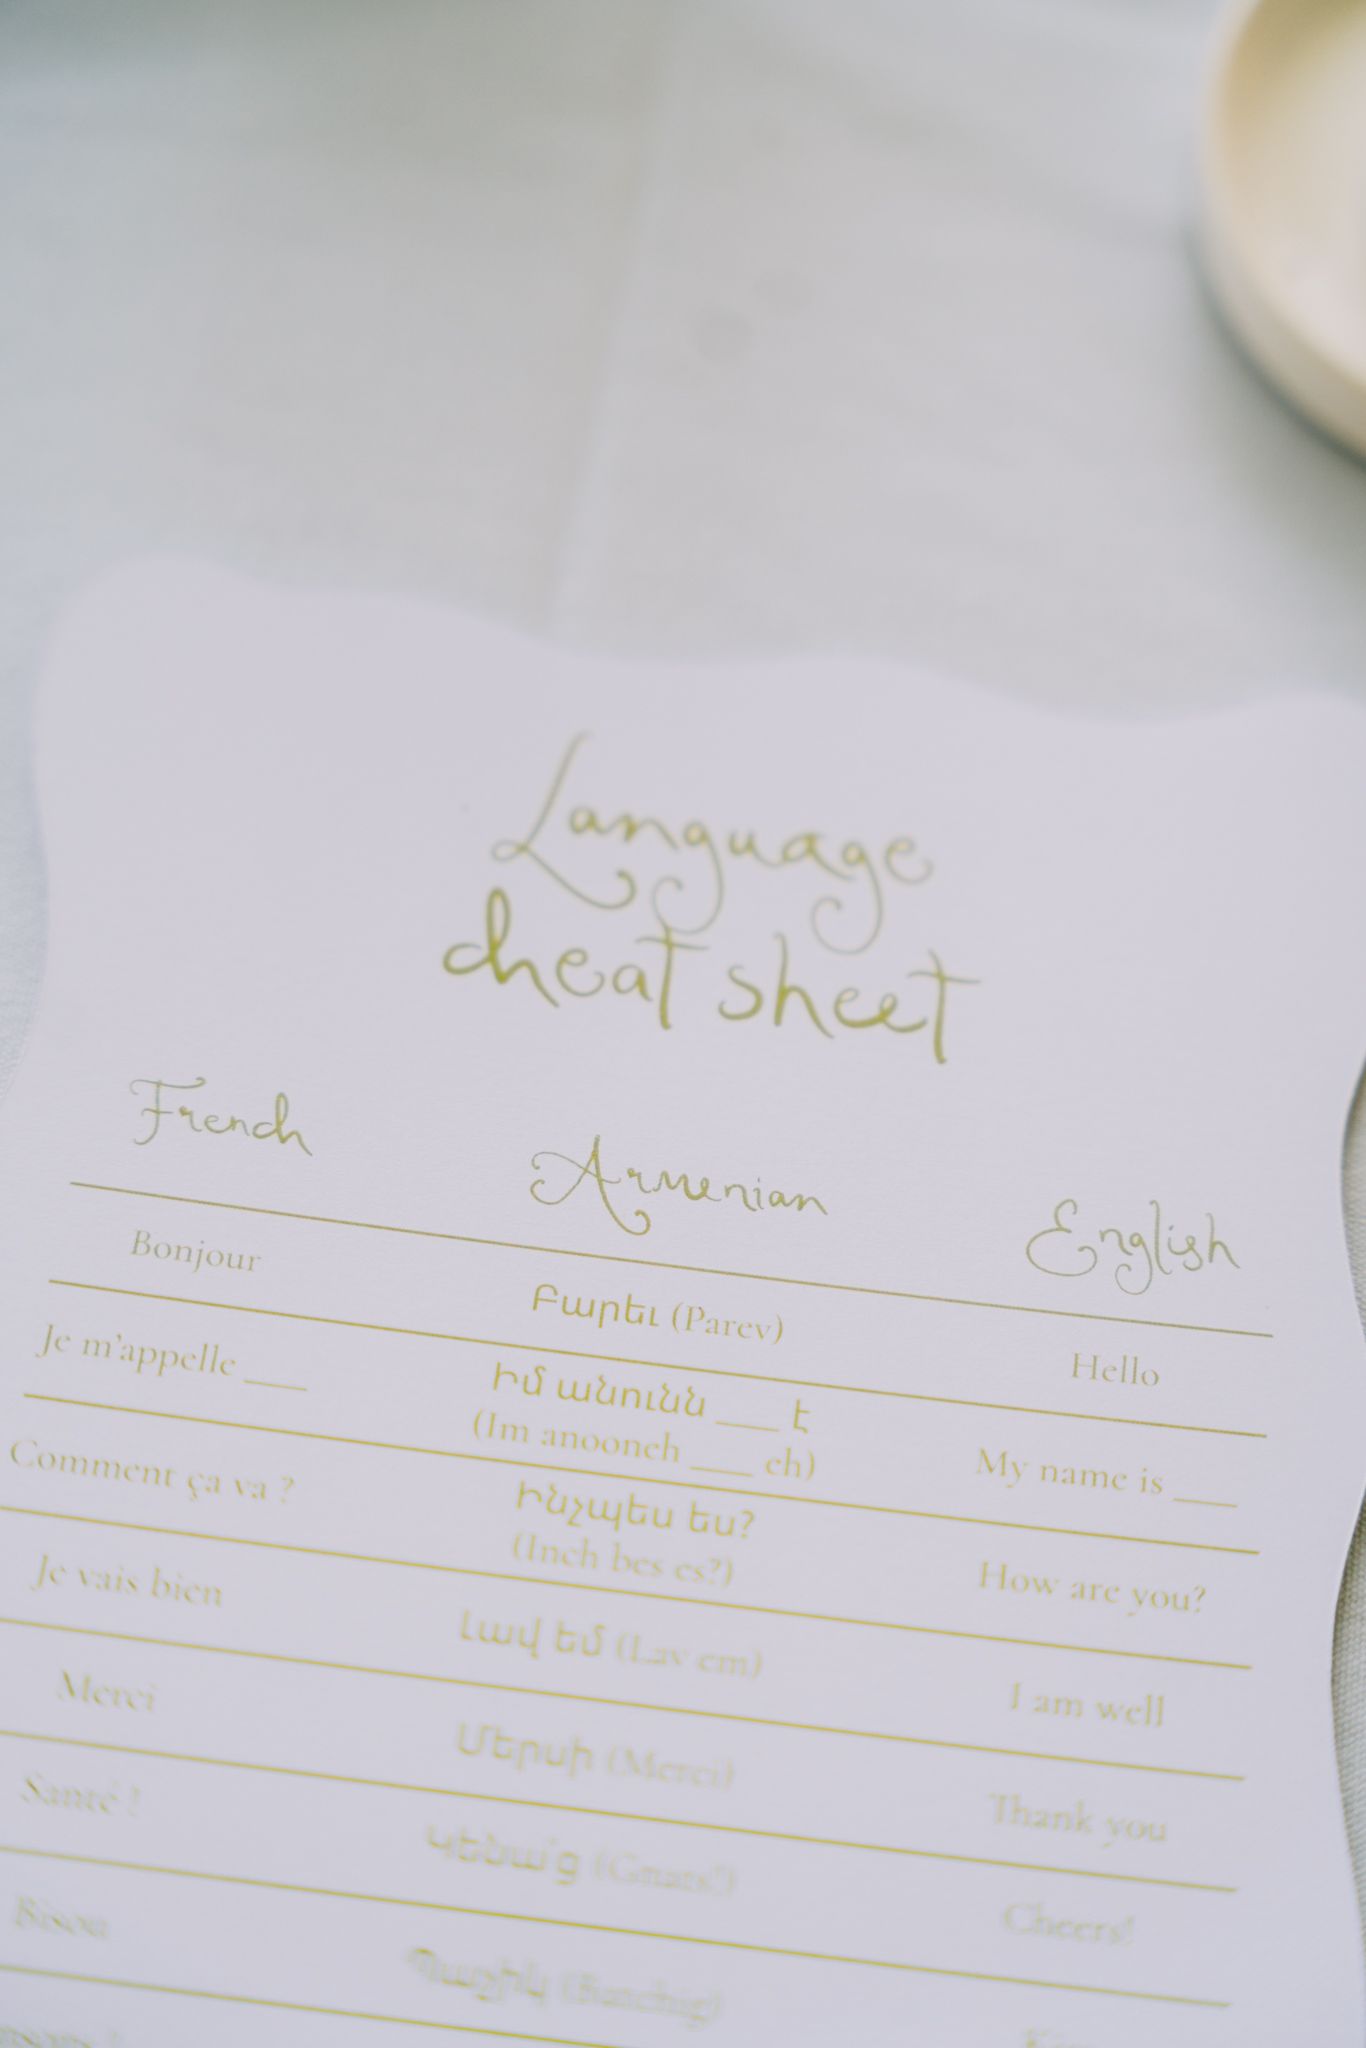 Language
cheat sheet
French Armenian English
Bonjour Բարեւ (Parev) Hello
Je m'appelle ___ Իմ անունն ___ է My name is ___
(Im anooneh ___ eh)
Comment ça va ? Ինչպես ես? How are you?
(Inch bes es?)
Je vais bien Լավ եմ (Lav em) I am well
Merci Մերսի (Merci) Thank you
Santé ! Կենա՛ց (Gnats!) Cheers!
Bisou Պաչիկ (Batchig)